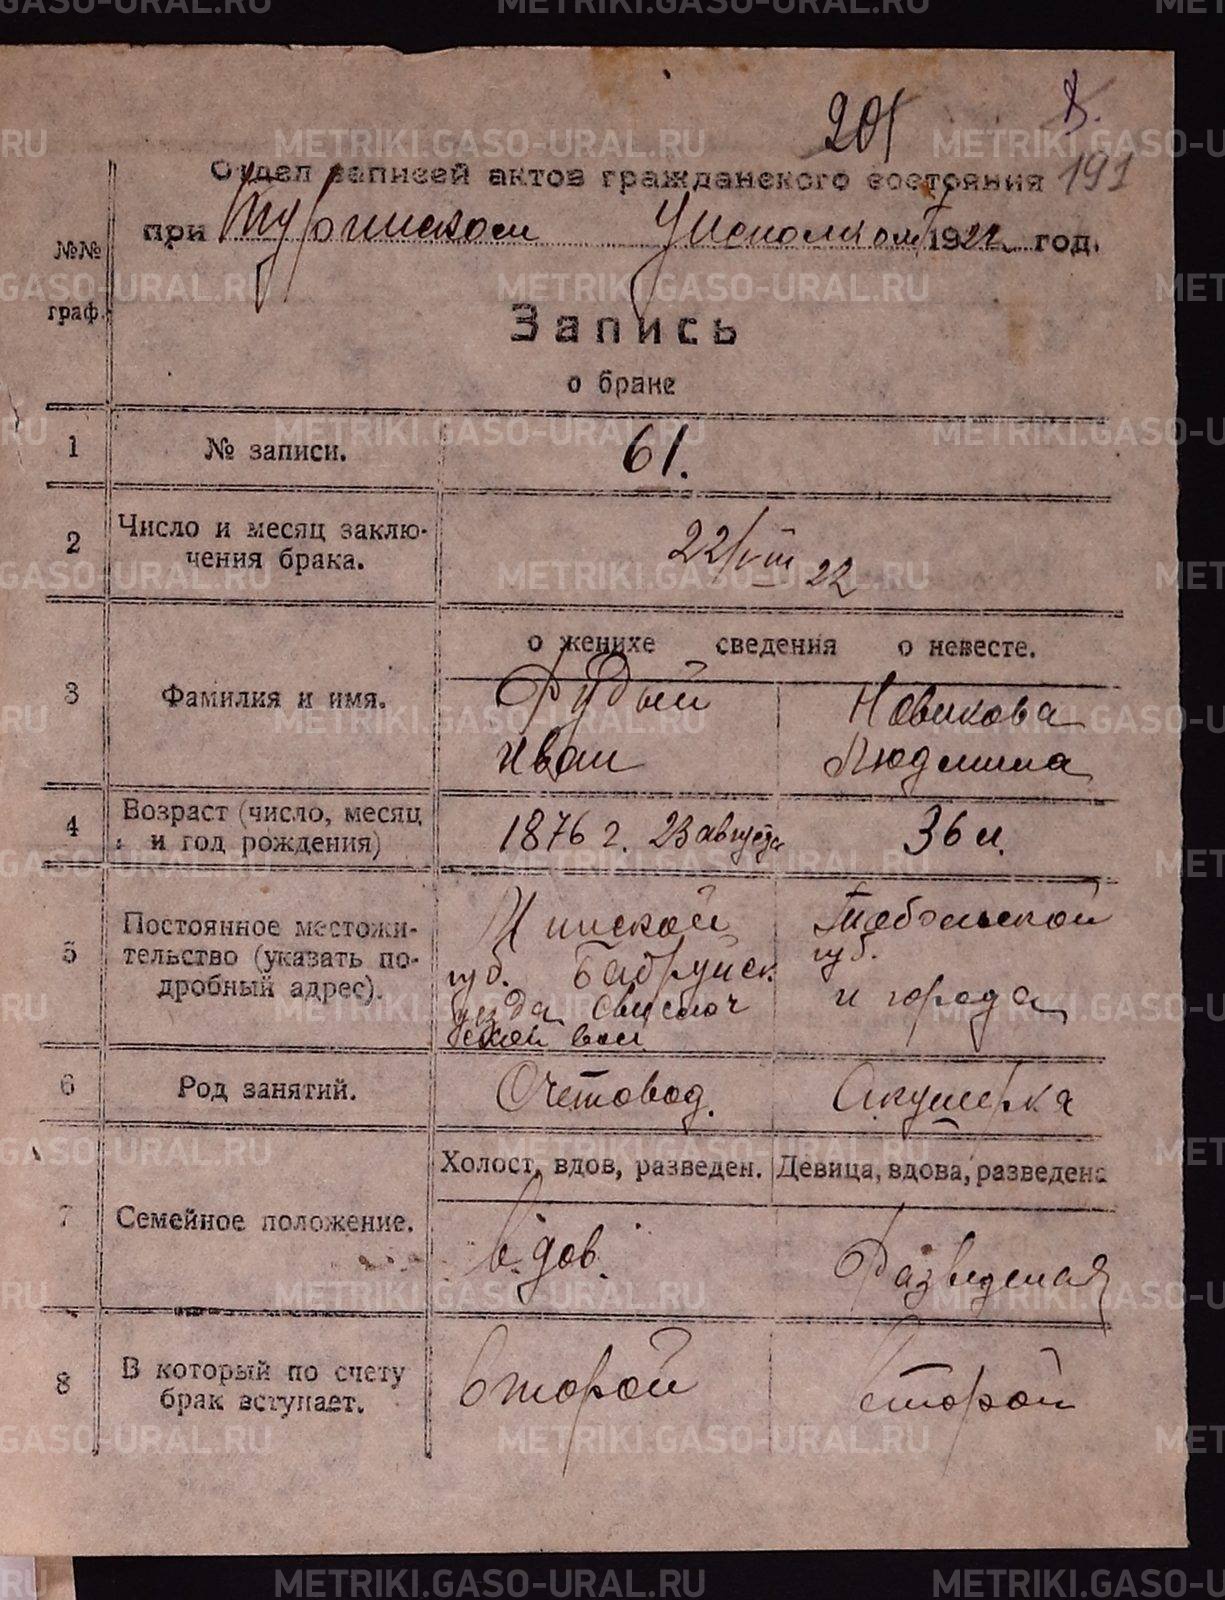 201
191
Отдел записей актов гражданского состояния
при Туринском Уисполком 1922 год.
№№
граф.
Запись
о браке
1 № записи. 61.
2 Число и месяц заклю-
чения брака. 22/VIII 22
о женихе сведения о невесте.
3 Фамилия и имя. Рудый Новикова
Иван Людмила
4 Возраст (число, месяц
и год рождения) 1876 г. 23 августа 36 л.
5 Постоянное местожи-
тельство (указать по-
дробный адрес).
Минской Тобольской
губ. Бабруйск губ.
уезда Свислоч и города
ской вол
6 Род занятий. Счетовод. Акушерка
Холост, вдов, разведен. Девица, вдова, разведена
7 Семейное положение. вдов. Разведеная
8 В который по счету
брак вступает. второй второй
METRIKI.GASO-URAL.RU